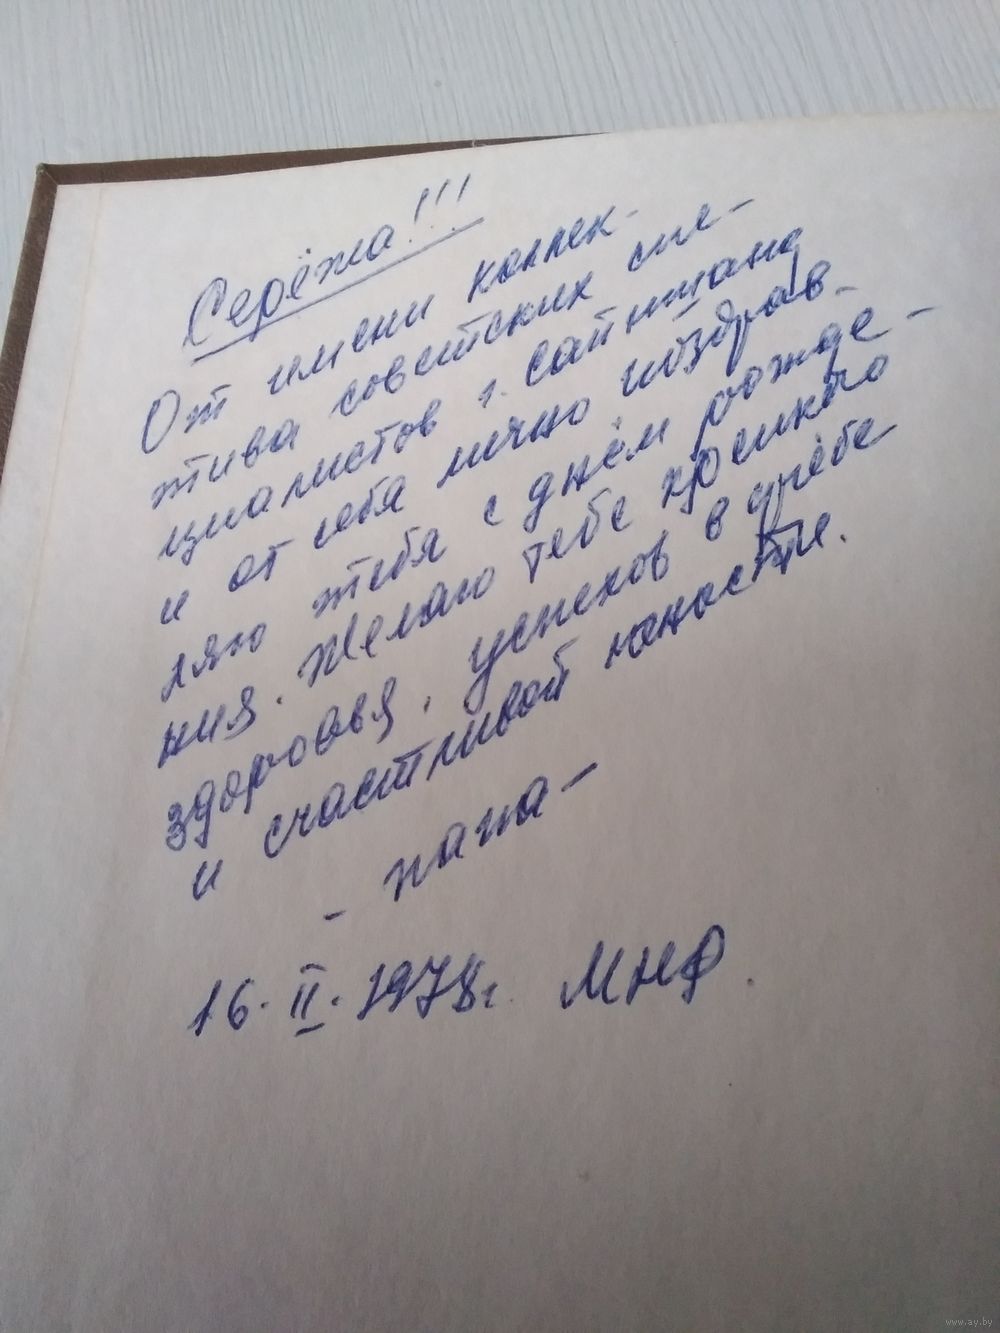 Серёжа!!!
От имени коллек-
тива советских спе-
циалистов г. Сайншанд
и от себя лично поздрав-
ляю тебя с днём рожде-
ния. Желаю тебе крепкого
здоровья, успехов в учёбе
и счастливой юности.
- папа -
16. II. 1978г. МНР.
www.ay.by